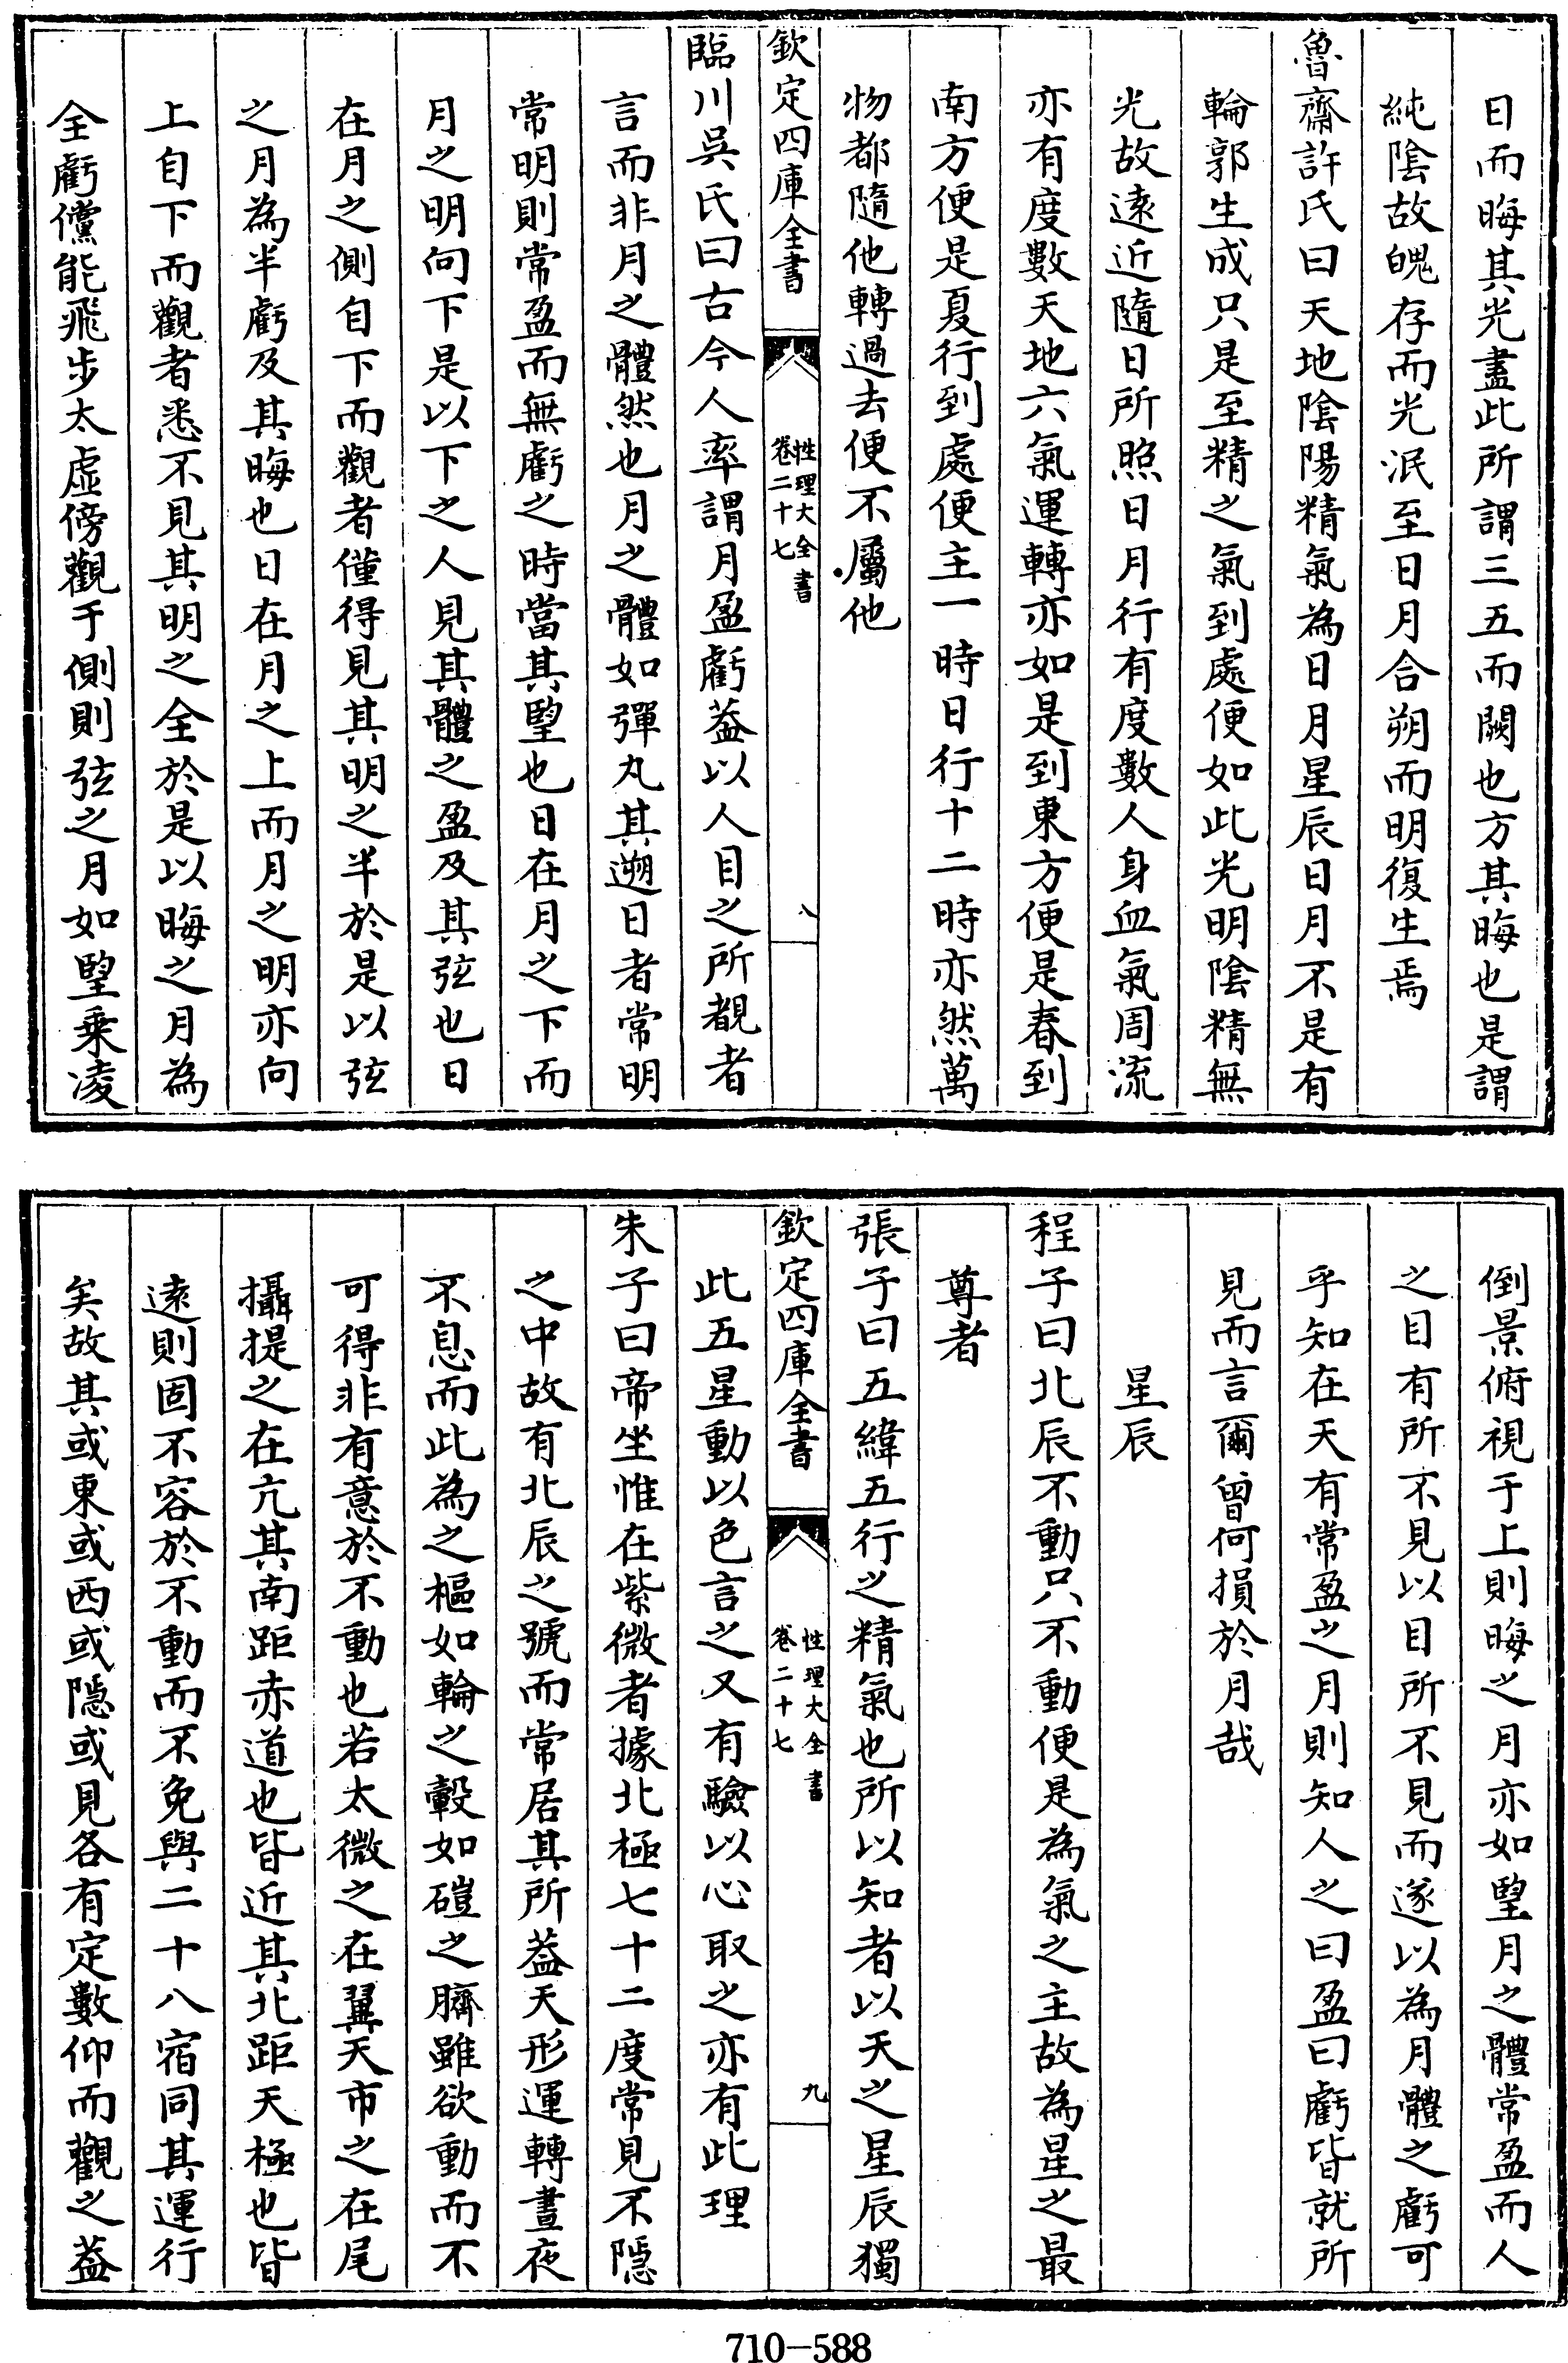 日而晦其光盡此所謂三五而闕也方其晦也是謂
純陰故魄存而光泯至日月合朔而明復生焉
魯齋許氏曰天地陰陽精氣為日月星辰日月不是有
輪郭生成只是至精之氣到處便如此光明陰精無
光故遠近隨日所照日月行有度數人身血氣周流
亦有度數天地六氣運轉亦如是到東方便是春到
南方便是夏行到處便主一時日行十二時亦然萬
物都隨他轉過去便不屬他
欽定四庫全書
性理大全書
卷二十七
八
臨川吳氏曰古今人率謂月盈虧葢以人目之所覩者
言而非月之體然也月之體如彈丸其遡日者常明
常明則常盈而無虧之時當其望也日在月之下而
月之明向下是以下之人見其體之盈及其弦也日
在月之側自下而觀者僅得見其明之半於是以弦
之月為半虧及其晦也日在月之上而月之明亦向
上自下而觀者悉不見其明之全於是以晦之月為
全虧儻能飛步太虛傍觀于側則弦之月如望乘凌
倒景俯視于上則晦之月亦如望月之體常盈而人
之目有所不見以目所不見而遂以為月體之虧可
乎知在天有常盈之月則知人之曰盈曰虧皆就所
見而言爾曾何損於月哉
星辰
程子曰北辰不動只不動便是為氣之主故為星之最
尊者
張子曰五緯五行之精氣也所以知者以天之星辰獨
欽定四庫全書
性理大全書
卷二十七
九
此五星動以色言之又有驗以心取之亦有此理
朱子曰帝坐惟在紫微者據北極七十二度常見不隱
之中故有北辰之號而常居其所葢天形運轉晝夜
不息而此為之樞如輪之轂如磑之臍雖欲動而不
可得非有意於不動也若太微之在翼天市之在尾
攝提之在亢其南距赤道也皆近其北距天極也皆
遠則固不容於不動而不免與二十八宿同其運行
矣故其或東或西或隱或見各有定數仰而觀之葢
710-588